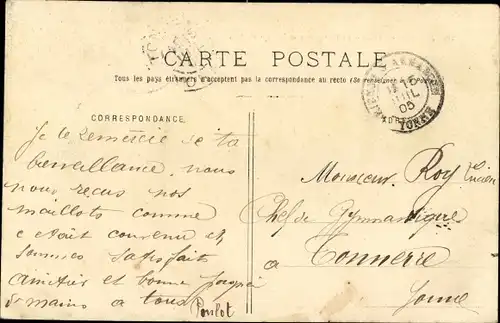 CARTE POSTALE
Tous les pays étrangers n'acceptent pas la correspondance au recto (Se renseigner à la Poste)
CORRESPONDANCE
Je te remercie de ta
bienveillance, nous
nous reçus nos
maillots comme
c était convenu et
sommes satisfait
amitier et bonne
de mains a tous
Poulot
Monsieur Roy Lucien
Chef de Gymnastique
a Tonnerre
Yonne
JUIL
05
YONNE